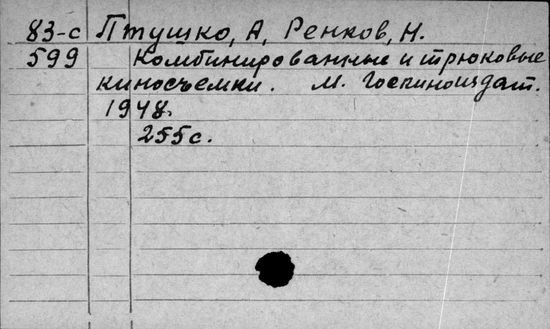 83-с Птушко, А, Ренков, Н.
599 Комбинированные и трюковые
киносъемки. М. Госкиноиздат.
1948.
255с.